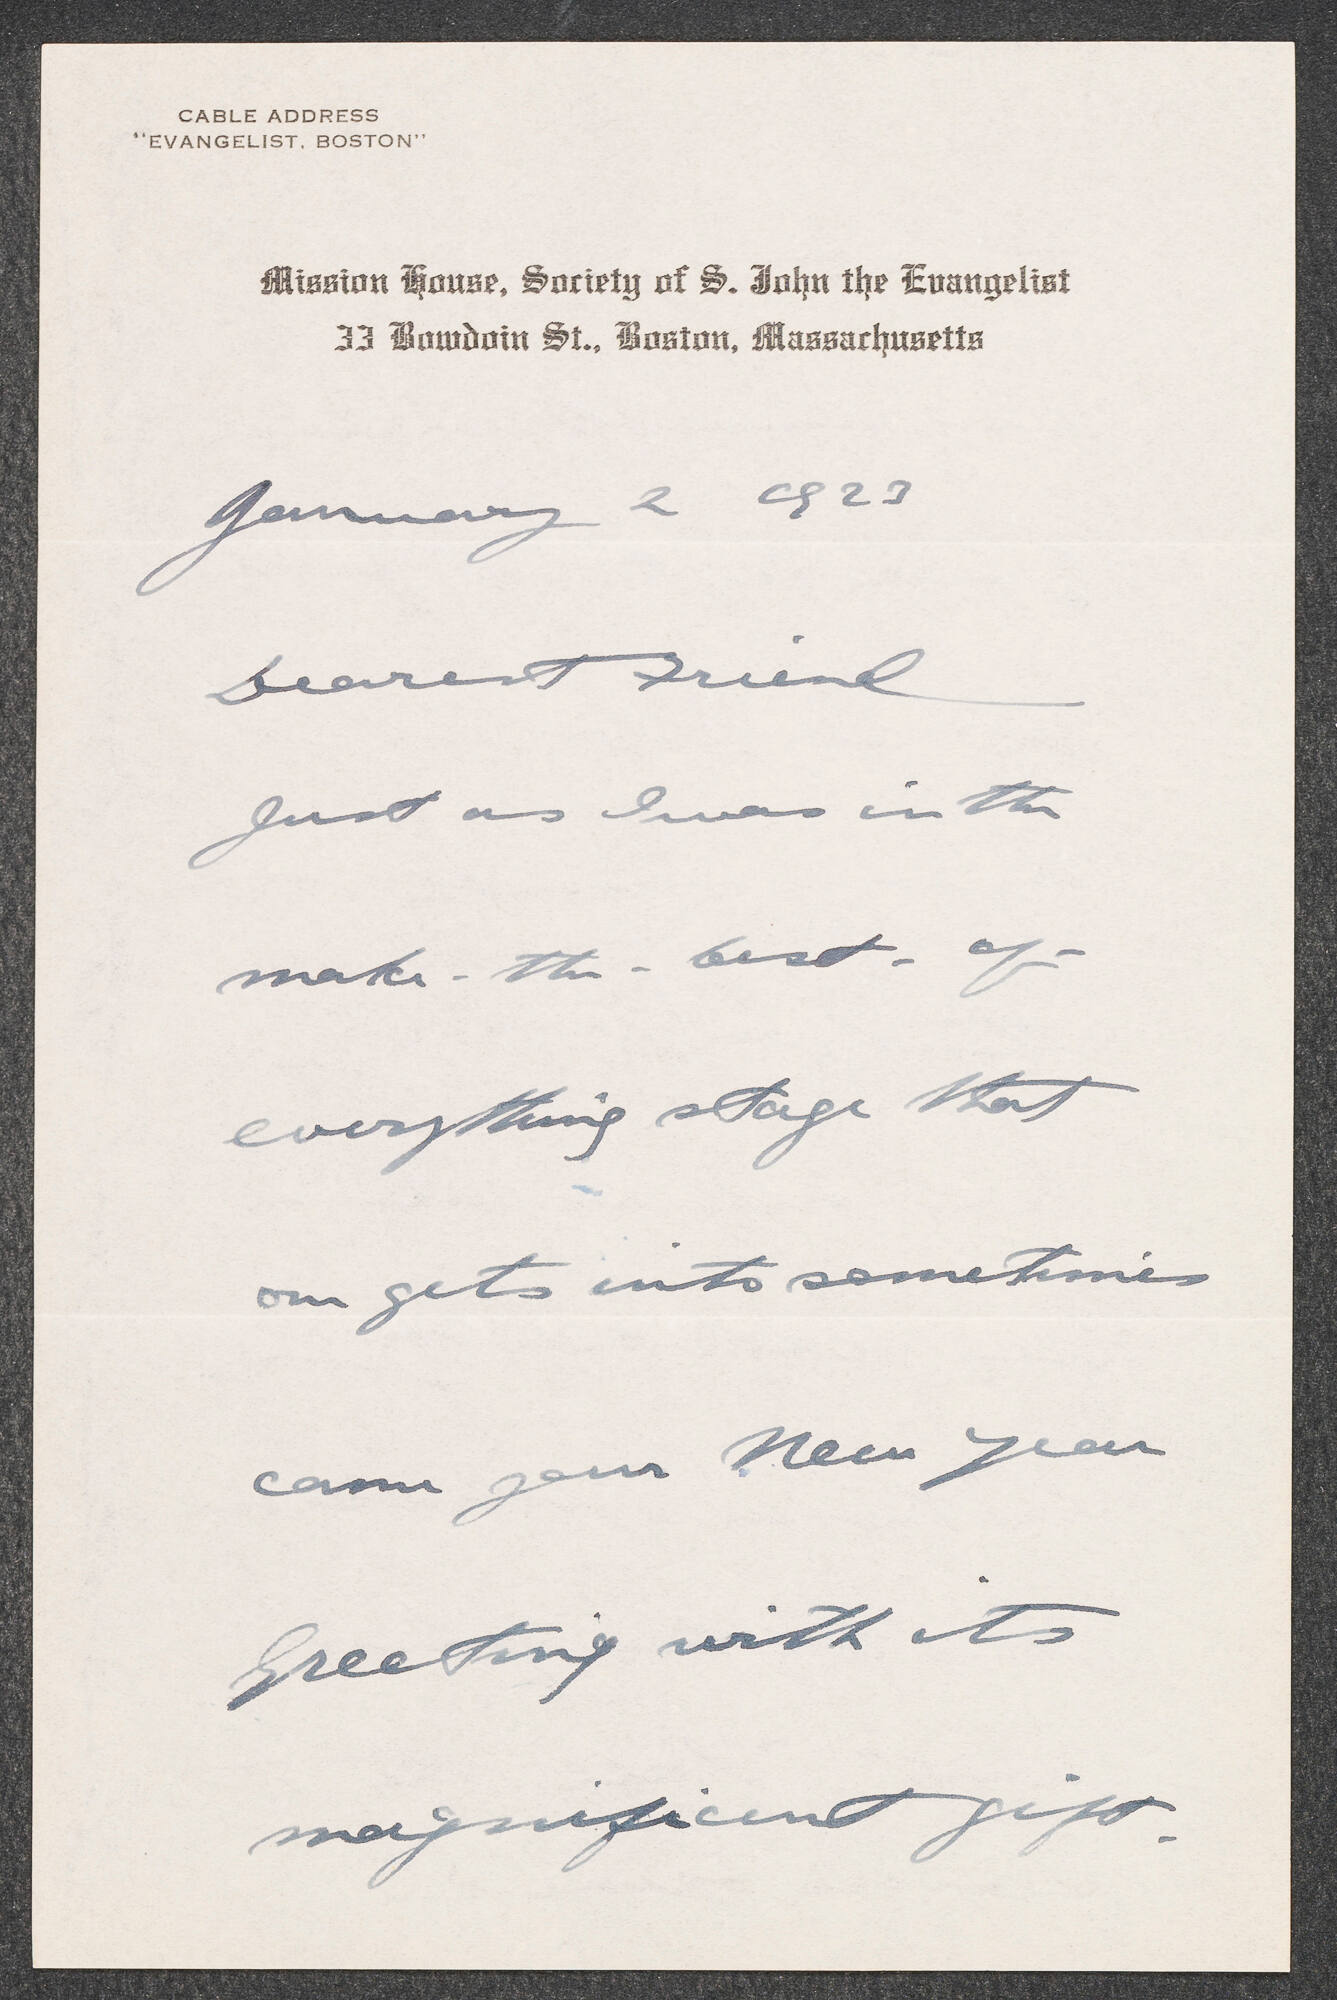 CABLE ADDRESS
"EVANGELIST, BOSTON"
Mission House, Society of S. John the Evangelist
33 Bowdoin St., Boston, Massachusetts
January 2 1923
Dearest Friend
Just as I was in the
make-the-best-of-
everything stage that
one gets into sometimes
came your New Year
Greeting with its
magnificent gift.